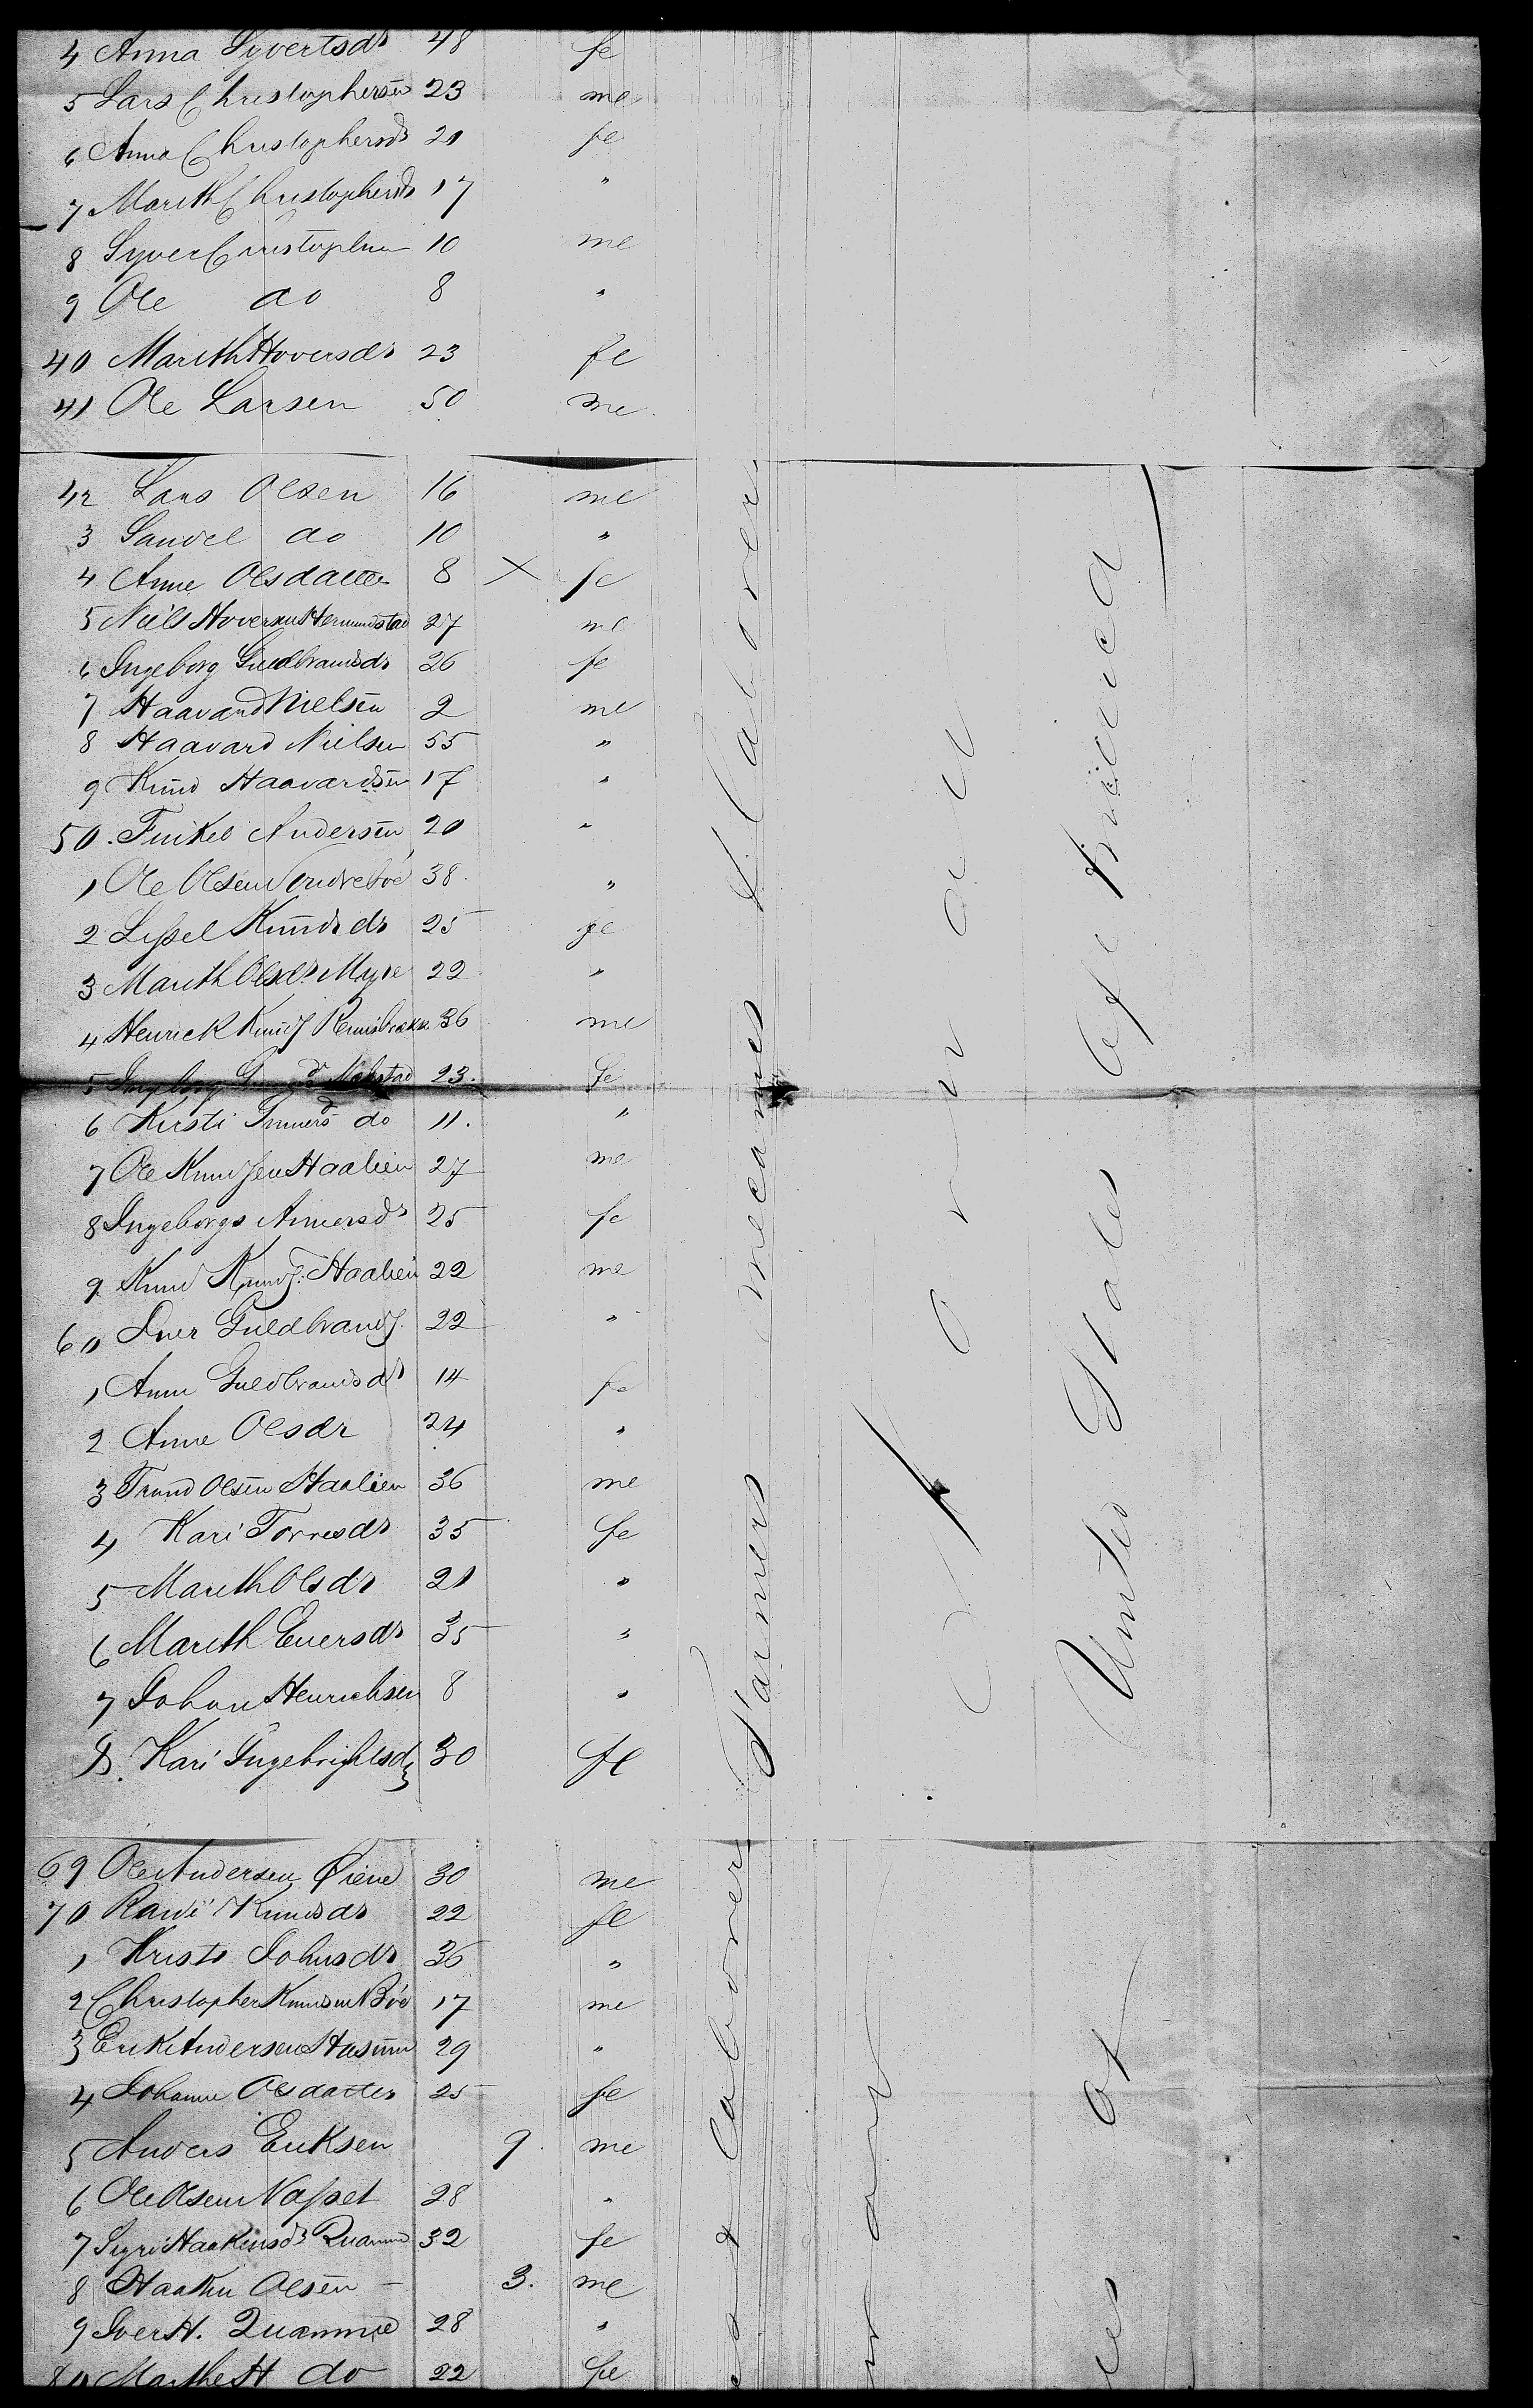 4 Anna Syvertsdr 48 fe
5 Lars Christophersen 23 me
6 Anna Christophersdr 21 fe
7 Marith Christophersdr 17 "
8 Syver Christophersen 10 me
9 Ole do 8 "
40 Marith Hoversdr 23 fe
41 Ole Larsen 50 me
42 Lars Olsen 16 me
3 do 10 "
4 Anne Olsdatter 8 X fe
5 Niels Hoversen Hermundstad 27 me
6 Ingeborg Guldbrandsdr 26 fe
7 Haavard Nielsen 2 me
8 Haavard Nielsen 55 "
9 Knud Haavardsen 17 "
50. Andersen 20 "
1 Ole Olsen 38 "
2 Lissel Knudsdr 25 fe
3 Marith Olsdr Myre 22 "
4 Henrick Knuds 36 me
5 Ingeborg 23. fe
6 Kirsti do 11. "
7 Ole Knudsen Haalien 27 me
8 Ingeborg 25 fe
9 Knud Knuds: Haalien 22 me
60 Iver Guldbrands. 22 "
1 Anne Guldbrandsdr 14 fe
2 Anne Olsdr 24 "
3 Trund Olsen Haalien 36 me
4 Kari Torresdr 35 fe
5 Marith Olsdr 21 "
6 Marith Eversdr 35 "
7 Johan Henrichsen 8 "
8. Kari Ingebrightsdr 30 fe
69 Ole Andersen Øiene 30 me
70 Knudsdr 22 fe
1 Kristi Johnsdr 36 "
2 Christopher Knudsen Böe 17 me
3 Erik Andersen 29 "
4 Johanne Olsdatter 25 fe
5 Anders Eriksen 9 me
6 Ole Olsen 28 "
7 Sigri Haakensdr Quamme 32 fe
8 Haaken Olsen - 3. me
9 Iver H. Quamme 28 "
80 Marthe H do 22 fe
& Labourer Farmers mecanics & Labourer
of America
United States
of